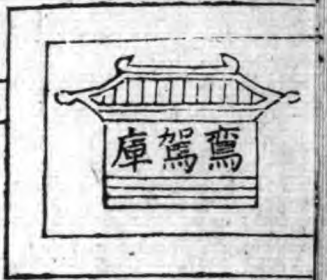 鸞駕庫